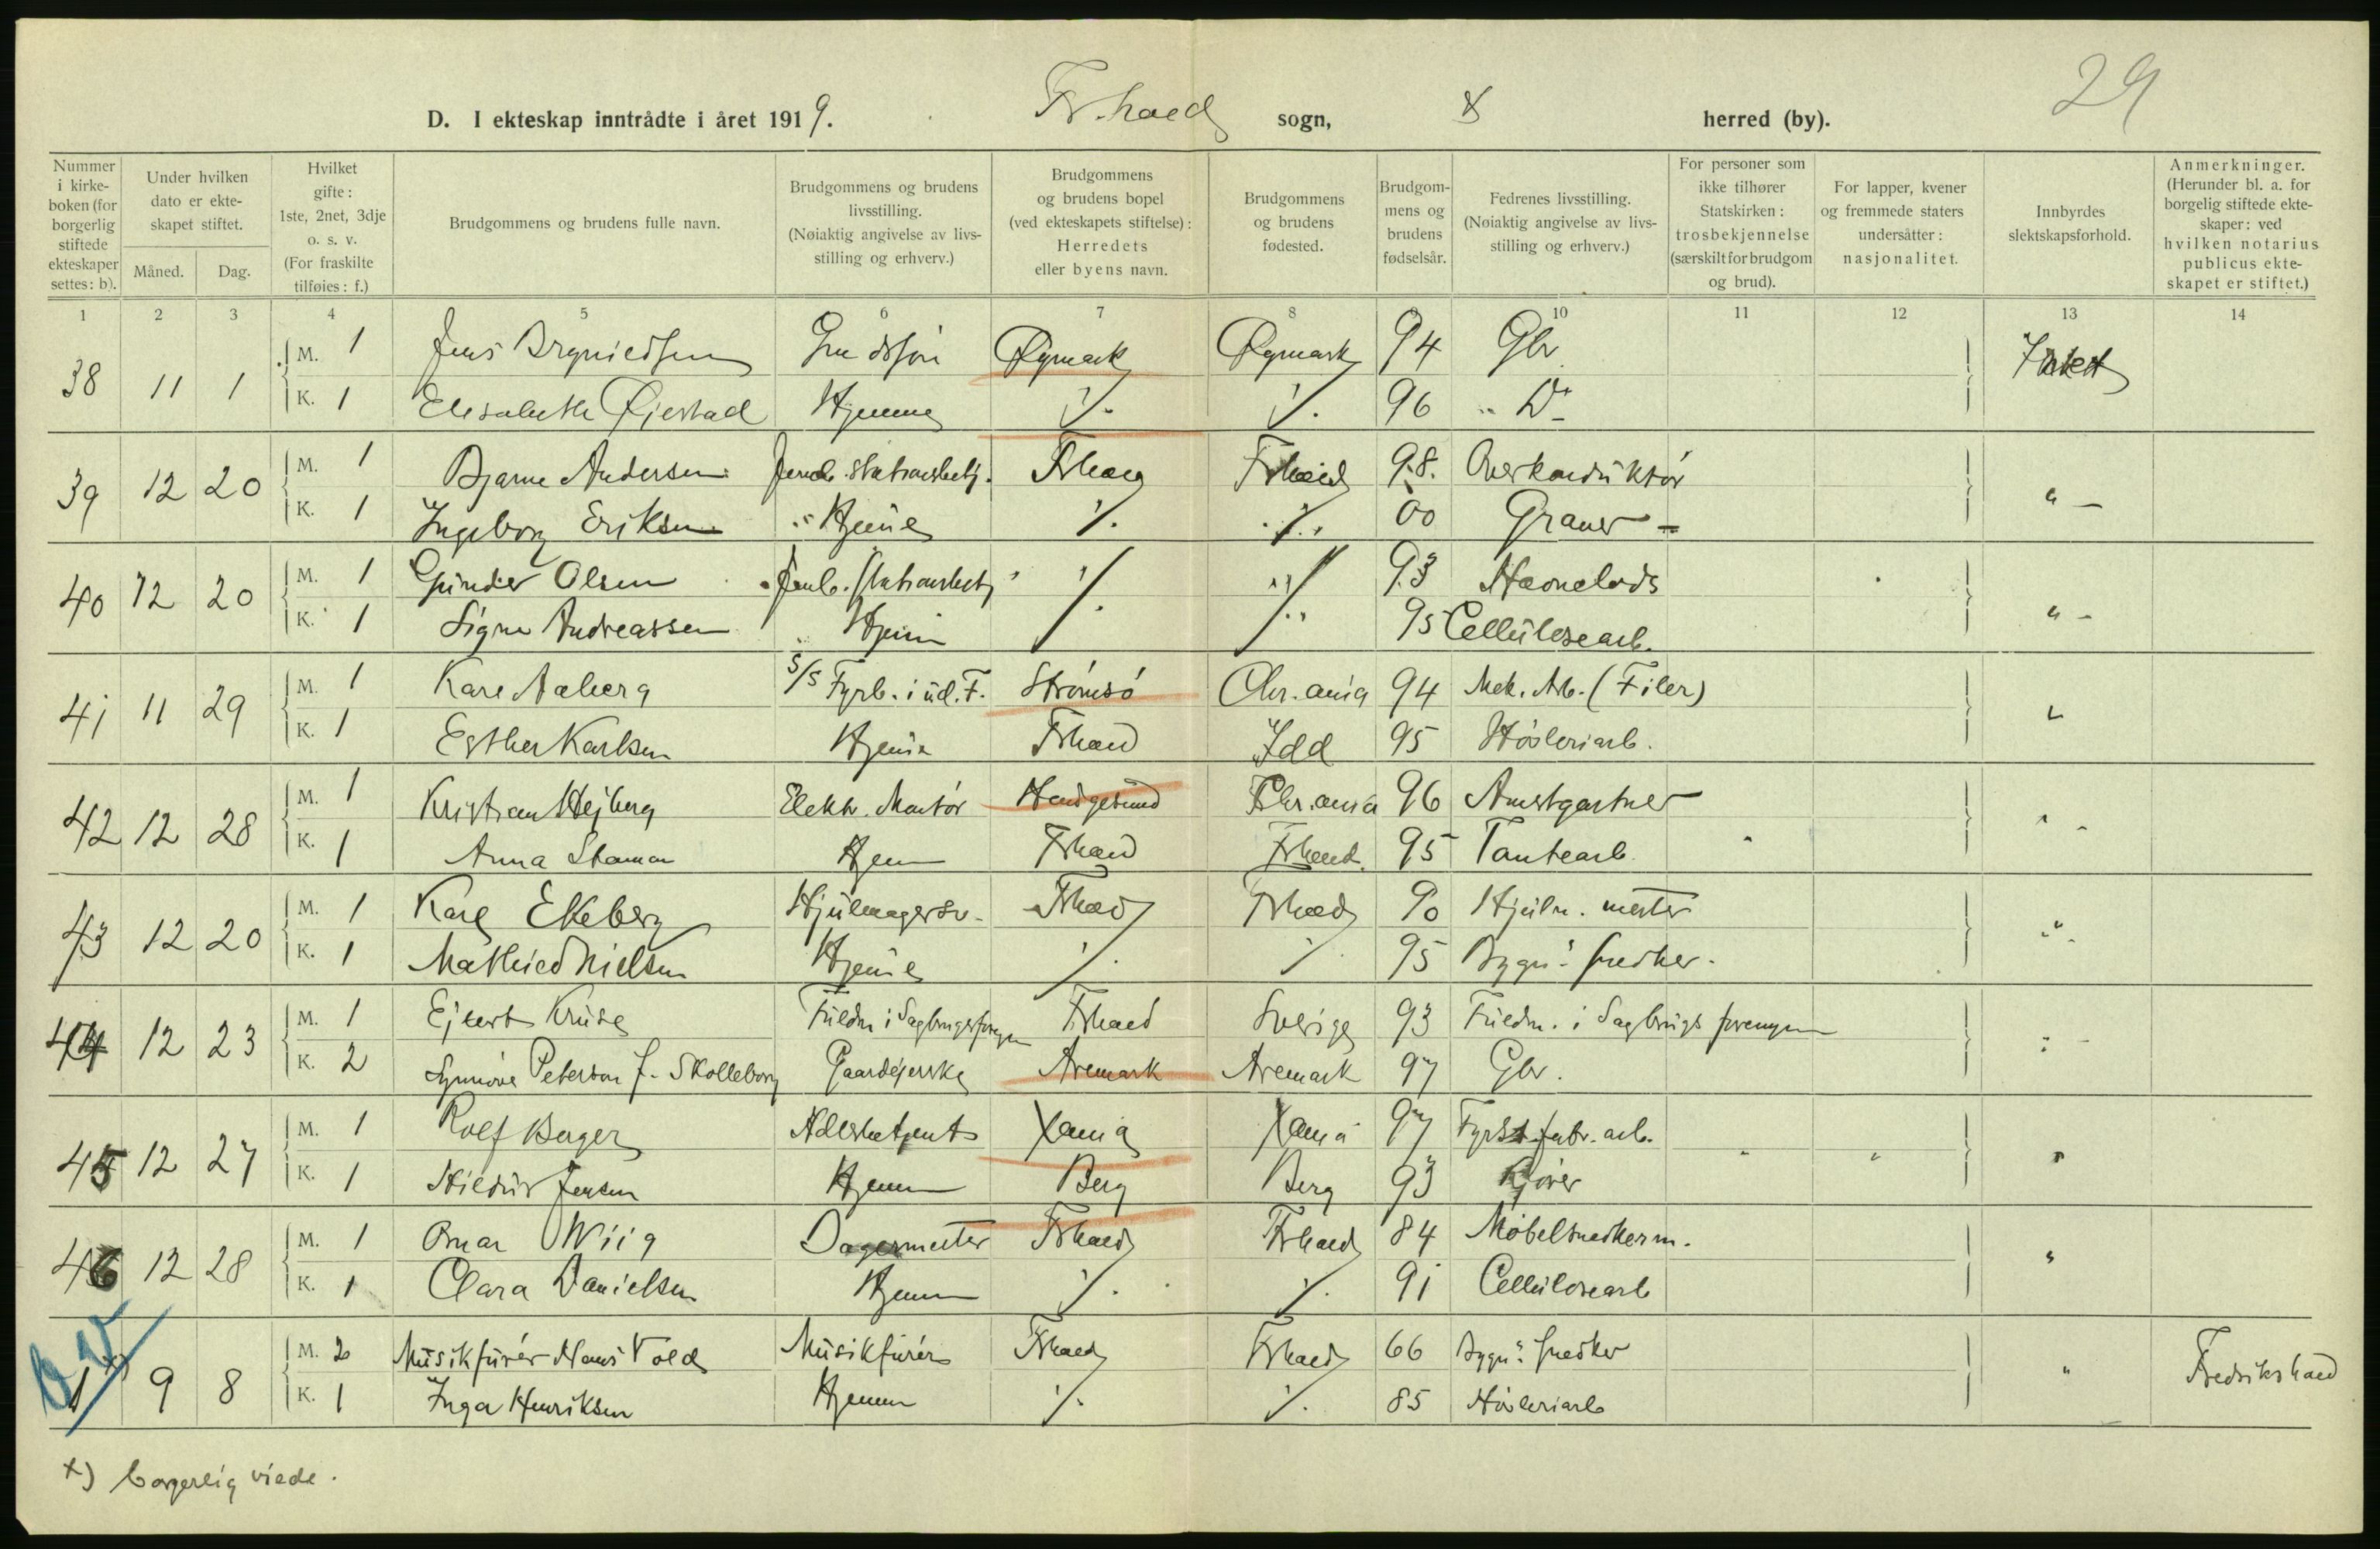 29
D. I ekteskap inntrådte i året 1919. Fr.hald sogn, herred (by).
Nummer i kirkeboken (for borgerlig stiftede ekteskaper settes: b).
Under hvilken dato er ekteskapet stiftet.
Måned. Dag.
Hvilket gifte: 1ste, 2net, 3dje o. s. v. (For fraskilte tilføies: f.)
Brudgommens og brudens fulle navn.
Brudgommens og brudens livsstilling. (Nøiaktig angivelse av livsstilling og erhverv.)
Brudgommens og brudens bopel (ved ekteskapets stiftelse): Herredets eller byens navn.
Brudgommens og brudens fødested.
Brudgommens og brudens fødselsår.
Fedrenes livsstilling. (Nøiaktig angivelse av livsstilling og erhverv.)
For personer som ikke tilhører Statskirken: trosbekjennelse (særskilt for brudgom og brud).
For lapper, kvener og fremmede staters undersåtter: nasjonalitet.
Innbyrdes slektskapsforhold.
Anmerkninger. (Herunder bl. a. for borgelig stiftede ekteskaper: ved hvilken notarius publicus ekteskapet er stiftet.)
1 2 3 4 5 6 7 8 10 11 12 13 14
38 11 1 M. 1 Jens Øymark Øymark 94 Gbr Intet
K. 1 Elisabeth Øiestad Hjemme ". ". 96 " Do
39 12 20 M. 1 Bjarne Andersen Jernb. stationsbetj. Frhald Frhald 98. Overkonduktör " -
K. 1 Ingeborg Eriksen Hjeme ". ". 00 Graver -
40 12 20 M. 1 Gunder Olsen Jernb. stationsbetj ". ". 93 Havnelods " -
K. 1 Signe Andreassen Hjem 95 Cellulosearb.
41 11 29 M. 1 Kare Aaberg S/S Fyrb. i ud. F. Strömsö Chr.ania 94 Mek. Arb. (Filer) "
K. 1 Esther Karlsen Hjeme Frhald Idd 95 Høvleriarb.
42 12 28 M. 1 Kristian Hejberg Elektr. Montör Chr.ania 96 Amtsgartner " -
K. 1 Anna Hjem Frhald Frhald. 95 Tomtearb.
43 12 20 M. 1 Karl Ekeberg Hjulmagersv. Frhald Frhald 90 Hjulm. mester "
K. 1 Mathied Nielsen Hjeme ". ". 95 Bygn.- snedker.
44 12 23 M. 1 Ejlert Kruse Fuldm i Sagbrugsforengn Frhald Sverige 93 Fuldm. i Sagbrugs forengen " -
K. 2 Synnöve Peterson f. Skolleborg Gaardejerske Aremark Aremark 97 Gbr.
45 12 27 M. 1 Rolf Berger Xania Xania 97 Fyrst.fabr. arb. " " "
K. 1 Hildur Jensen Hjemme Berg Berg 93 Kjörer
46 12 28 M. 1 Wiig Frhald Frhald 84 Möbelsnedkerm. "
K. 1 Clara Danielsen Hjemme ". ". 91 Cellulosearb
1 x) 9 8 M. 2 Musikfurér Hans Vold Musikfurér Frhald Frhald 66 Bygn. snedker " Fredrikshald
K. 1 Inga Henriksen Hjemme ". ". 85 Høvleriarb
x) borgerlig viede.